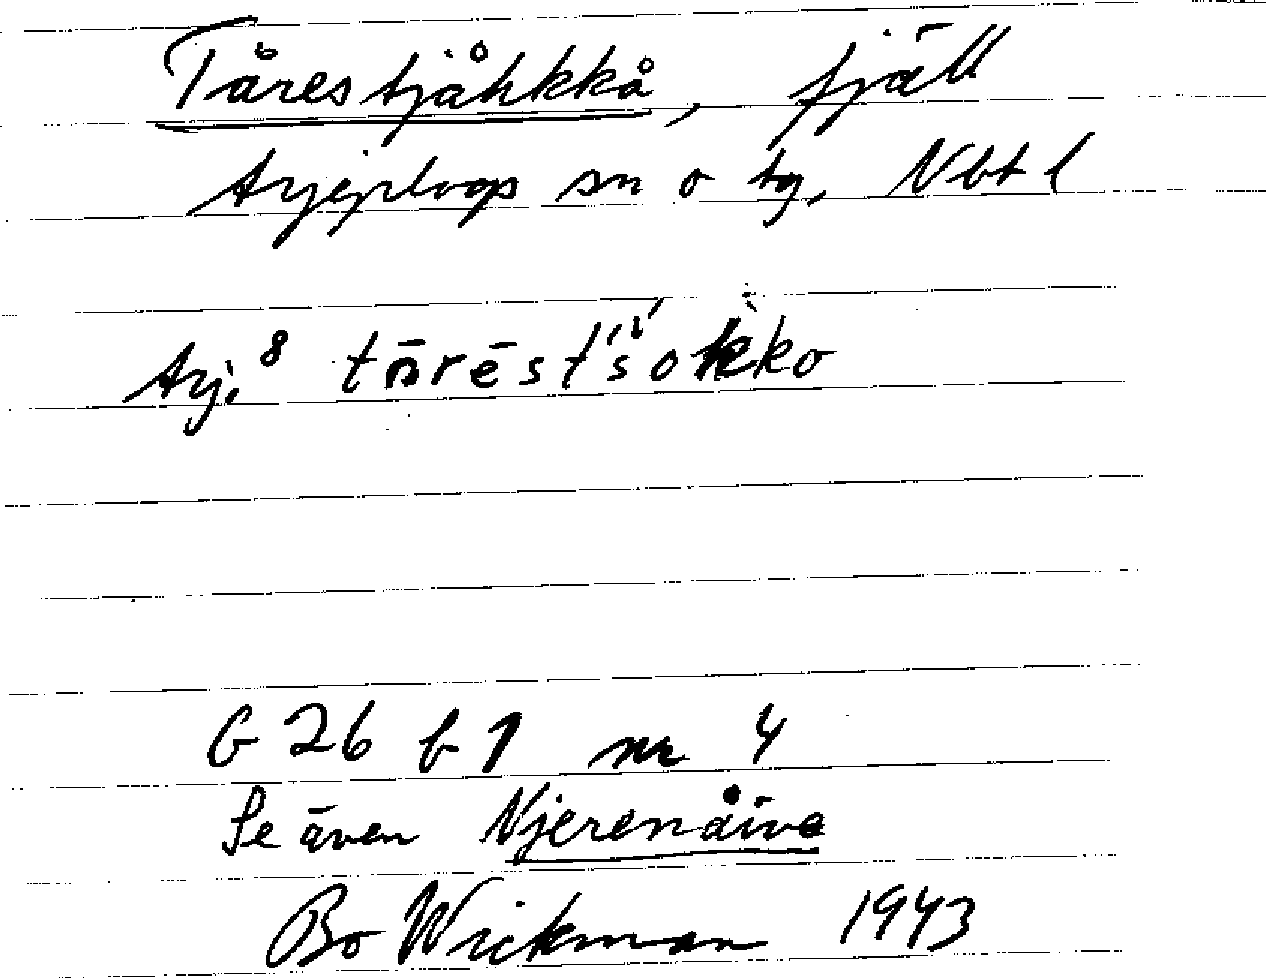 Tårestjåhkkå, fjäll
Arjeplogs sn o tg, Nbt l
Arj. 8
G 26 b 1 nr 4
Se även Njerenåive
Bo Wickman 1943